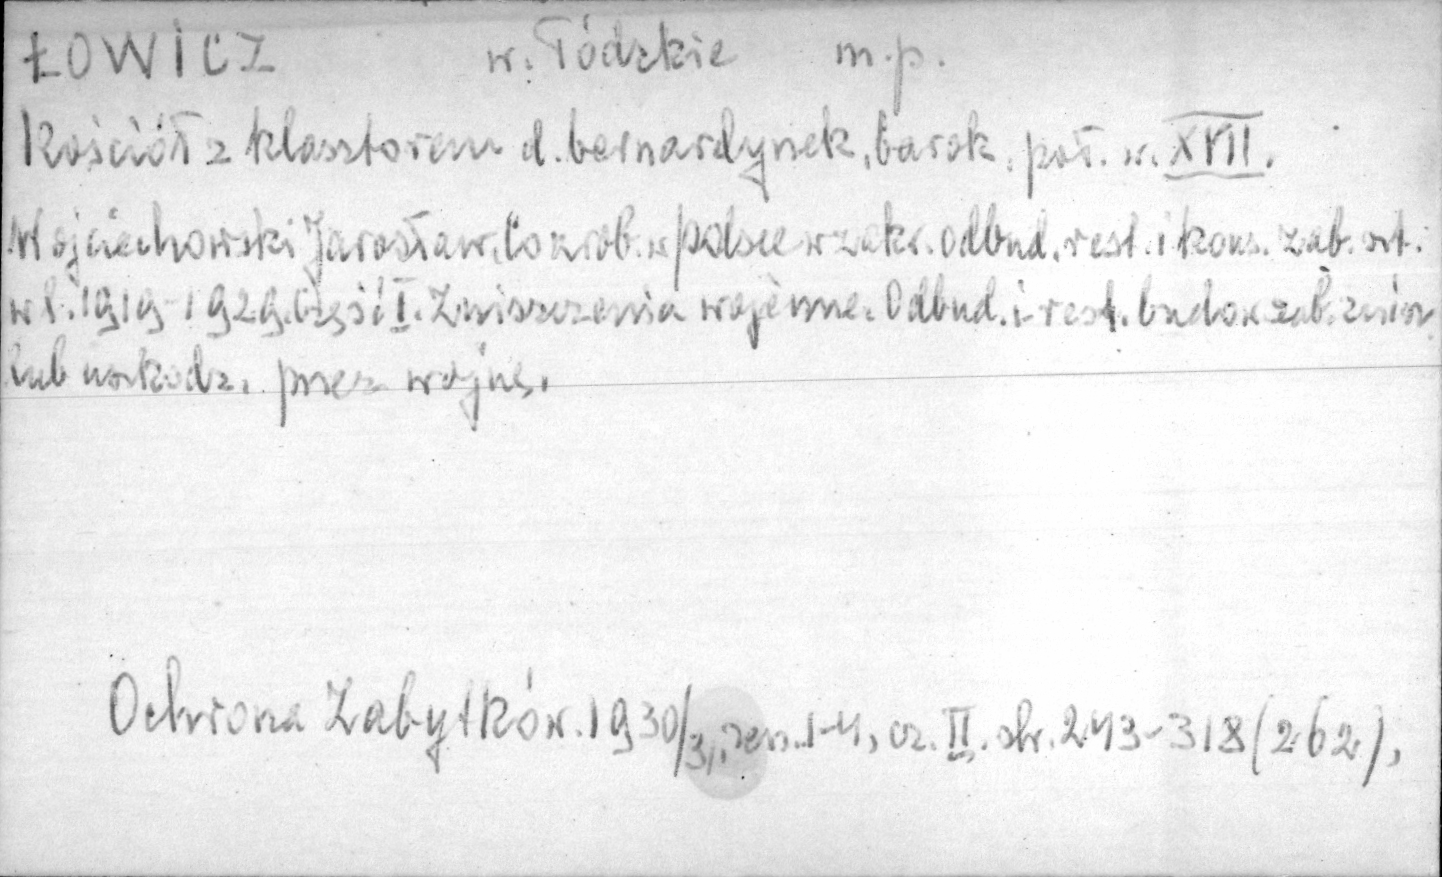 ŁOWICZ w. Łódzkie m.p.
Kościół z klasztorem d. bernardynek, barok, poł. w. XVII.
Wojciechowski Jarosław, Co zrob. w Polsce w zakr. odbud. rest. i kons. zab. szt.
w l. 1919-1929. Część I. Zniszczenia wojenne. Odbud. i rest. budow. zab. znisz.
lub uszkodz. przez wojnę.
Ochrona Zabytków. 1930/31, zesz. 1-4, cz. II. str. 243-318 (262),